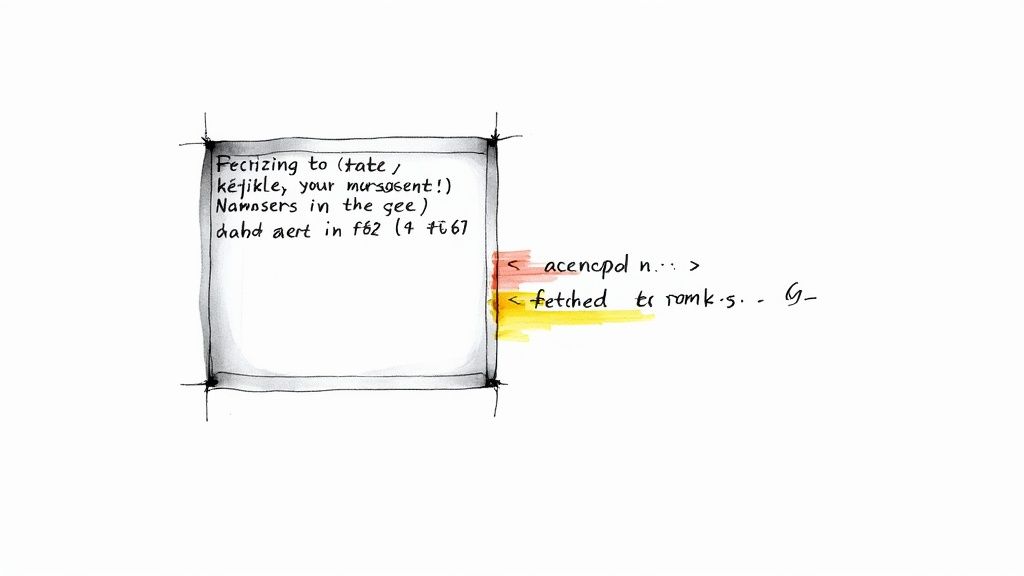 Fecrizing to (tate,
kéfikle, your mursosent!)
Namnsers in the gee)
dahd aert in f62 (4
< acencpd n... >
< fetched